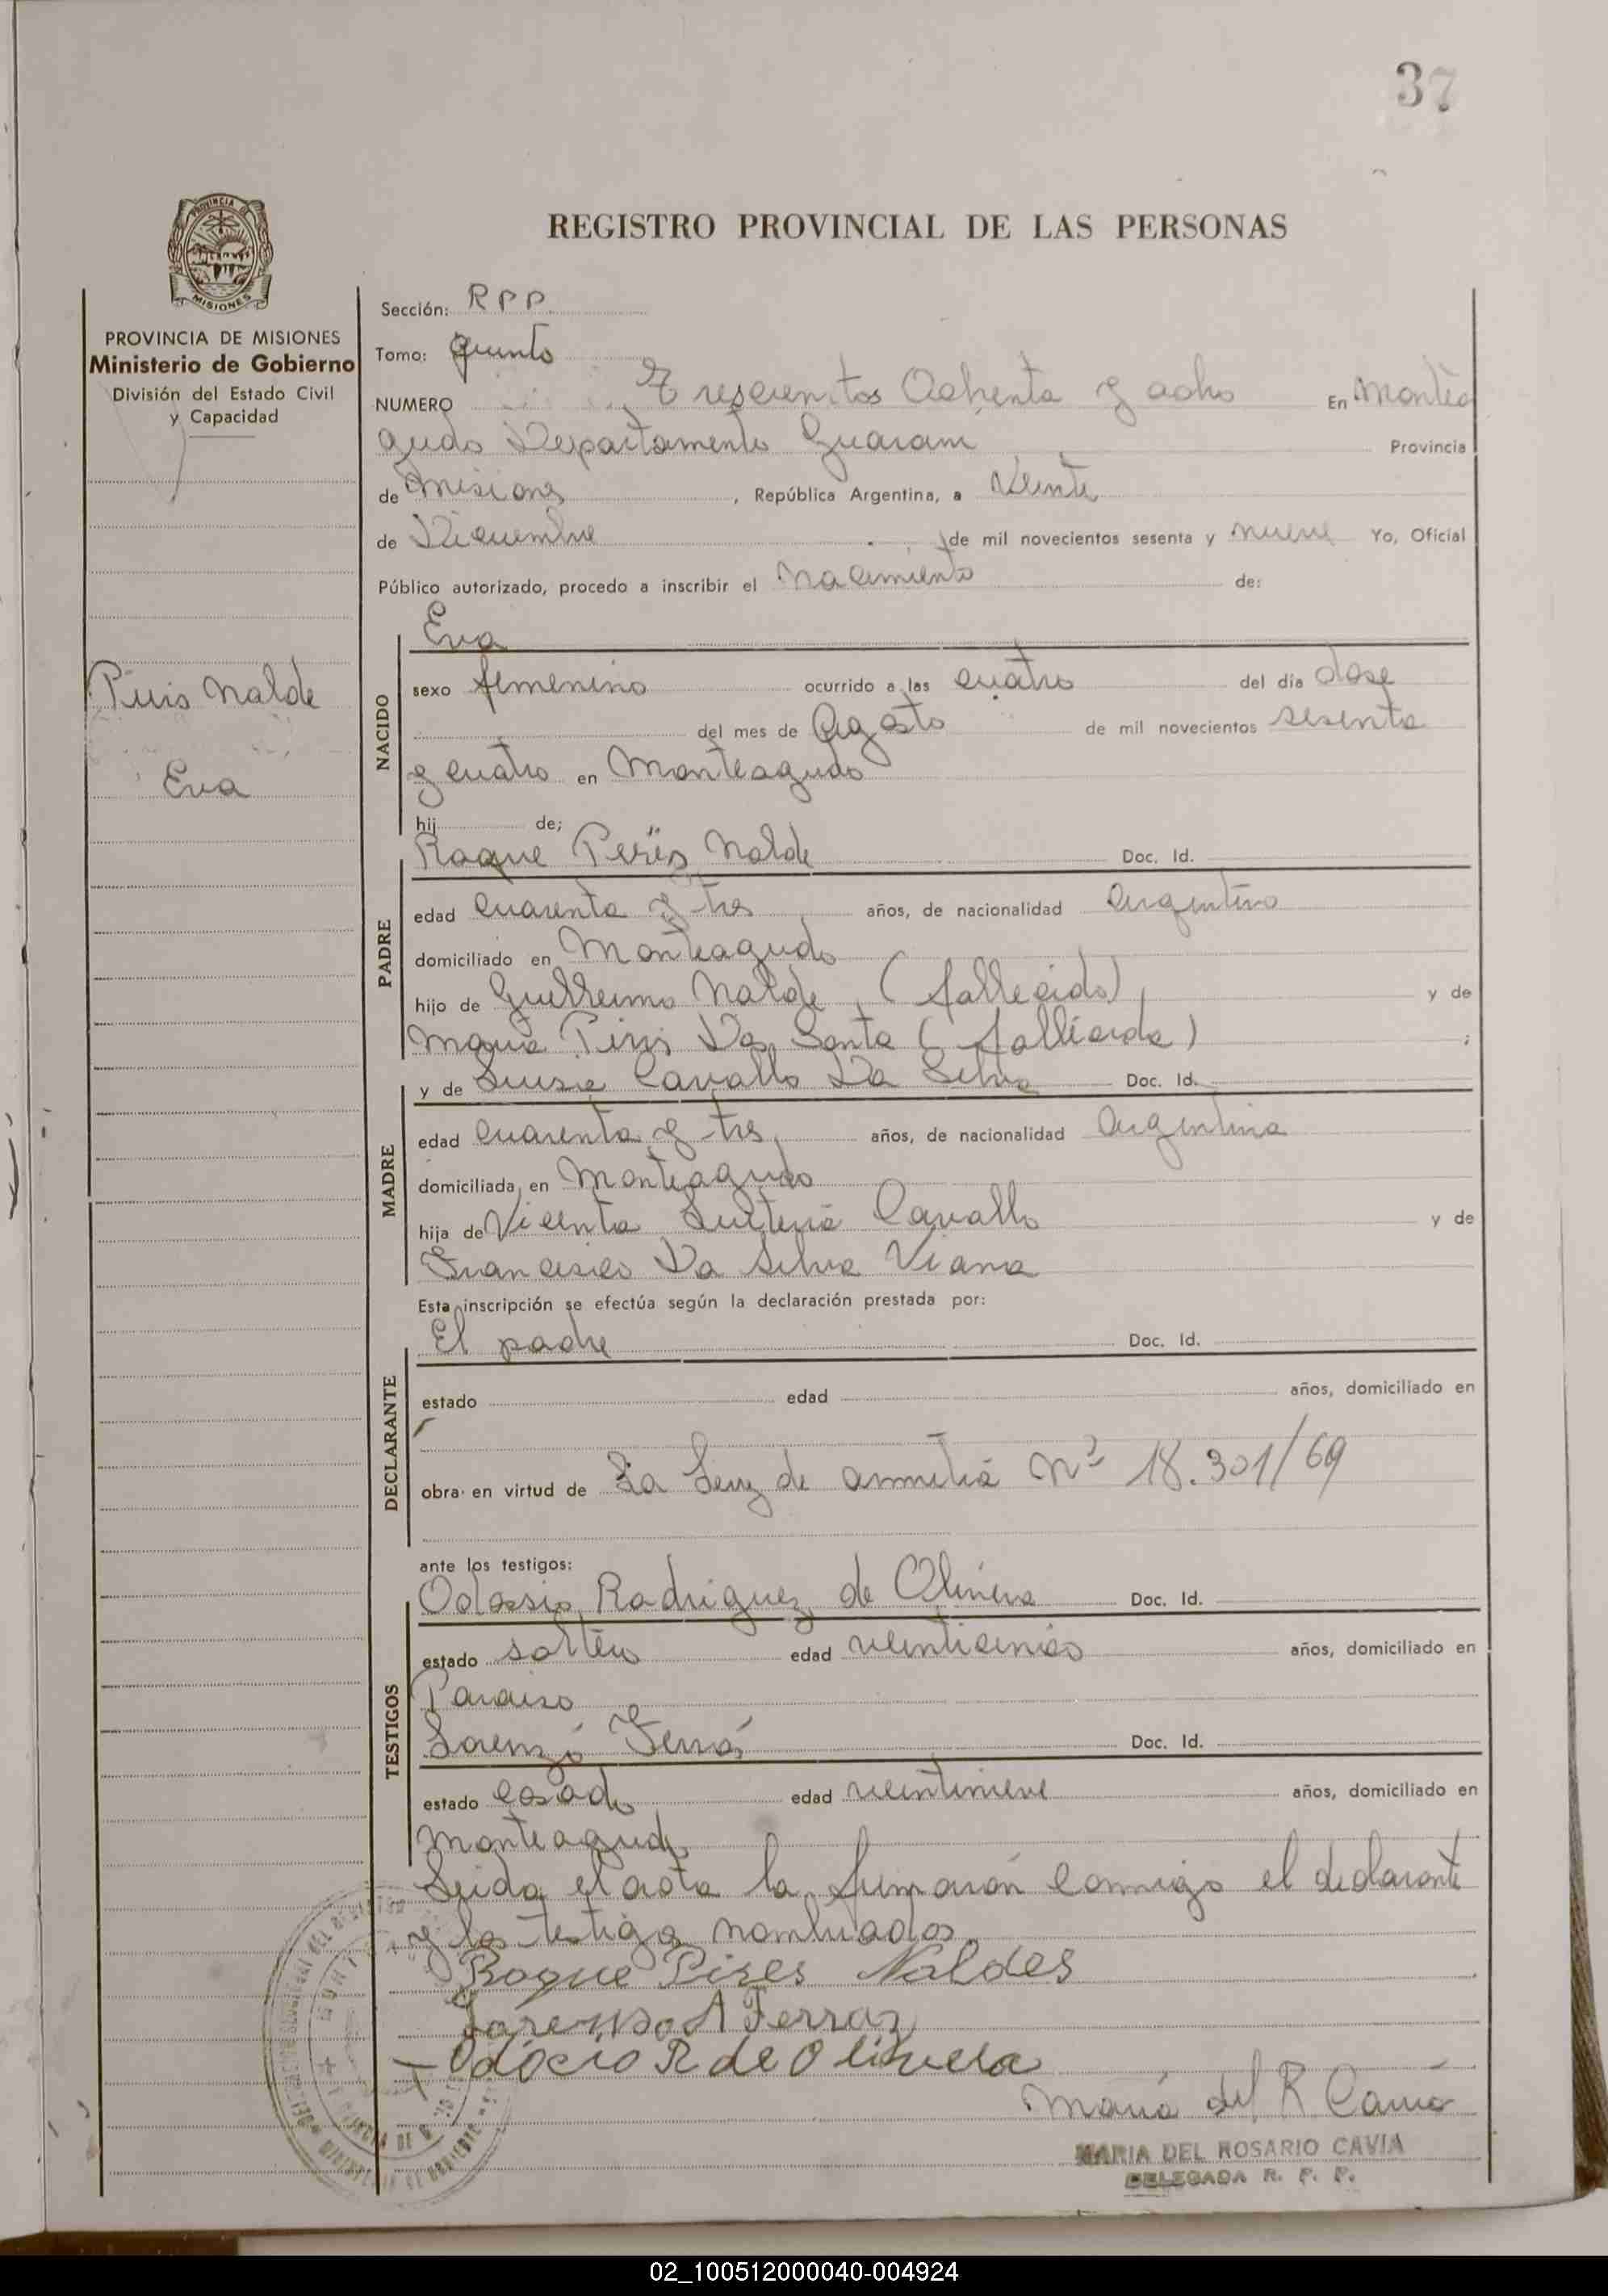 37
REGISTRO PROVINCIAL DE LAS PERSONAS
PROVINCIA DE
MISIONES
PROVINCIA DE MISIONES
Ministerio de Gobierno
División del Estado Civil
y Capacidad
Piris Nalde
Eva
Sección: RPP
Tomo: Quinto
NUMERO Trescientos Ochenta y ocho En Montea
gudo Departamento Guarani Provincia
de Misiones, República Argentina, a Veinte
de Diciembre de mil novecientos sesenta y nueve Yo, Oficial
Público autorizado, procedo a inscribir el Nacimiento de:
NACIDO
Eva
sexo femenino ocurrido a las cuatro del día dose
del mes de Agosto de mil novecientos sesenta
y cuatro en Monteagudo
hij de;
PADRE
Roque Nalde Doc. Id.
edad cuarenta y tres años, de nacionalidad argentino
domiciliado en Monteagudo
hijo de Guillermo Nalde (fallecido) y de
Maria Piris Dos Santo (fallicida) ;
MADRE
y de Luisa Cavallo Da Silva Doc. Id.
edad cuarenta y tres años, de nacionalidad Argentina
domiciliada en Monteagudo
hija de Vicenta Cavallo y de
Francisco Da Silva Viana
Esta inscripción se efectúa según la declaración prestada por:
DECLARANTE
El padre Doc. Id.
estado edad años, domiciliado en
obra en virtud de La Ley de Nº 18.301/69
ante los testigos:
TESTIGOS
Rodriguez de Olivera Doc. Id.
estado soltero edad años, domiciliado en
Paraiso
Lorenzo Doc. Id.
estado casado edad años, domiciliado en
Monteagudo
Leida el acta la firmarón conmigo el declarante
y los testigos nombrados
Roque Pires Naldes
Lorenso A Ferraz
Odócio R de Oliveira
Maria del R Cavia
MARIA DEL ROSARIO CAVIA
DELEGADA R. P. P.
02_100512000040-004924